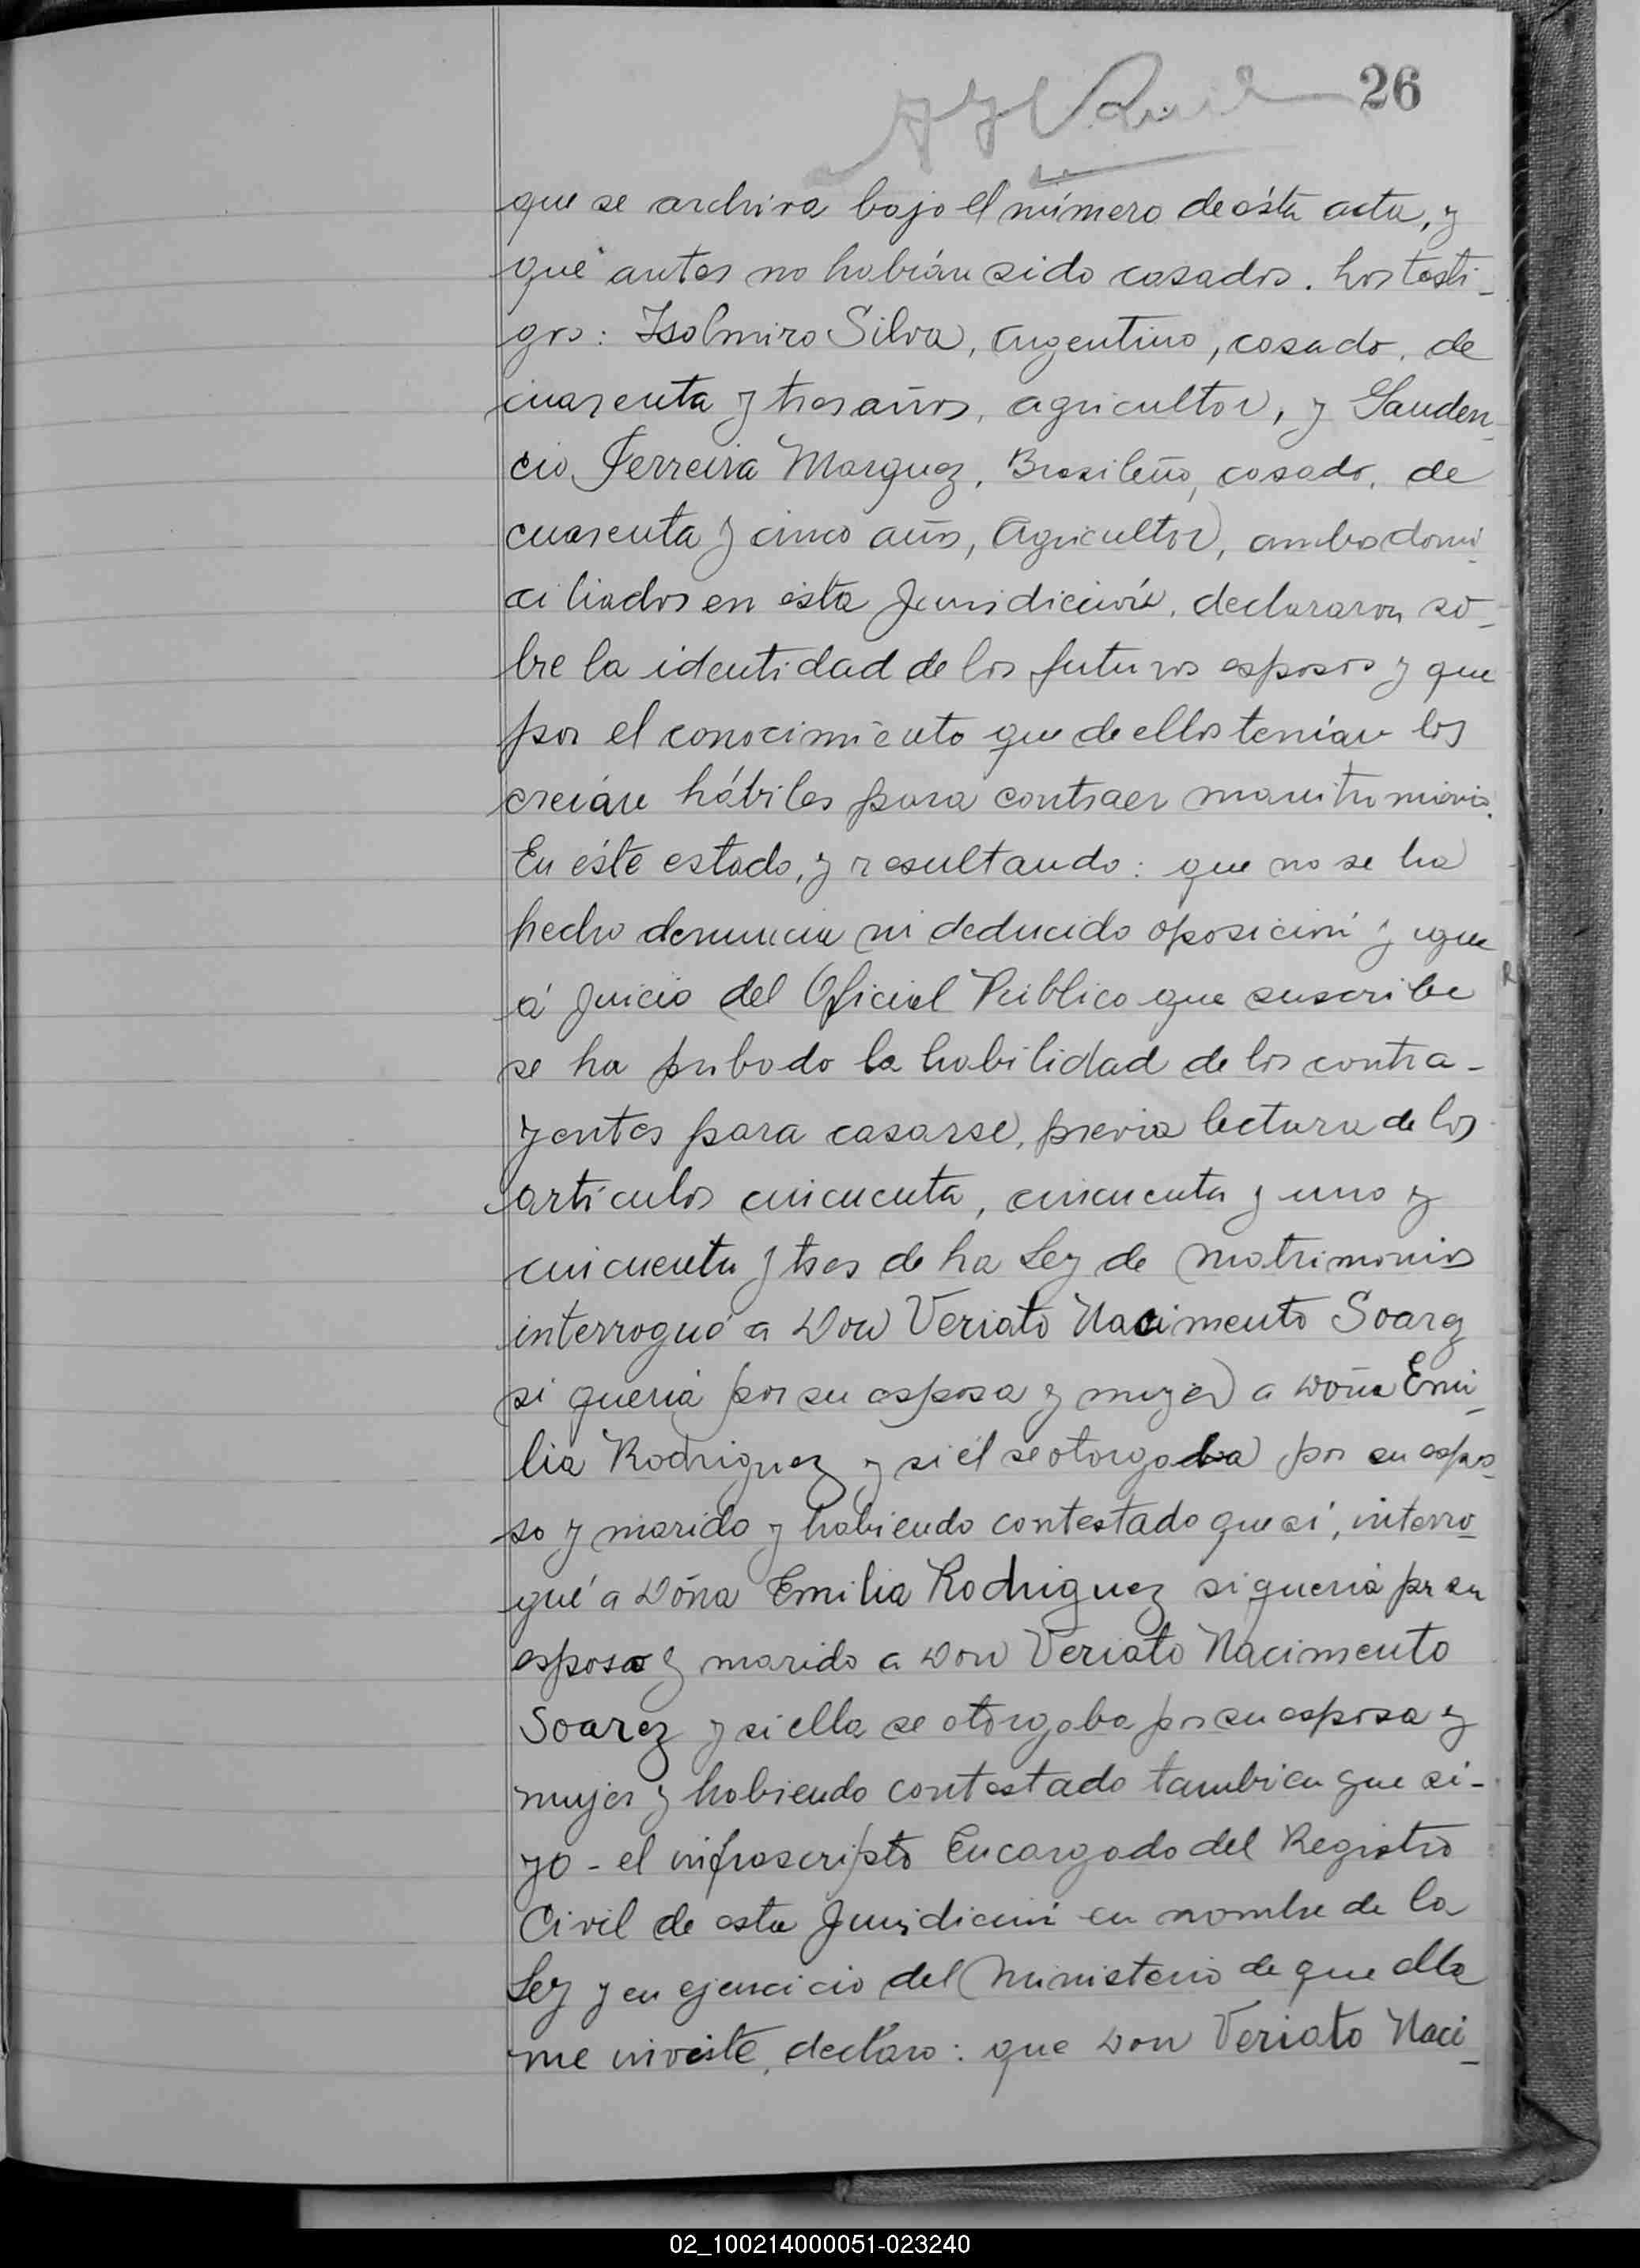 26
que se archiva bajo el número de ésta acta, y
que antes no habían sido casados. Los testi-
gos: Isolmiro Silva, Argentino, casado, de
cuarenta y tres años, agricultor, y Gauden-
cio Ferreira Marquez, Brasileño, casado, de
cuarenta y cinco años, Agricultor, ambos domi-
ciliados en ésta Jurisdicción, declararon so-
bre la identidad de los futuros esposos y que
por el conocimiento que de ellos tenían los
creían hábiles para contraer
En éste estado, y resultando: que no se ha
hecho denuncia ni deducido oposición y que
á juicio del Oficial Público que suscribe
se ha prubado la habilidad de los contra-
yentes para casarse, previa lectura de los
artículos cincuenta, cincuenta y uno y
cincuenta y tres de La Ley de Matrimonios
interrogué a Don Veriato Nacimento Soarez
si quería por su esposa y mujer a Doña Emi-
lia Rodriguez y si él se otorgaba por su espo-
so y marido y habiendo contestado que sí, interro-
gué a Doña Emilia Rodriguez si quería por su
esposo y marido a Don Veriato Nacimento
Soarez y si ella se otorgaba por su esposa y
mujer y habiendo contestado tambien que si-
yo - el infrascripto Encargado del Registro
Civil de esta Jurisdicción en nombre de la
Ley y en ejercicio del Ministerio de que ella
me inviste, declaro: que Don Veriato Naci-
02_100214000051-023240